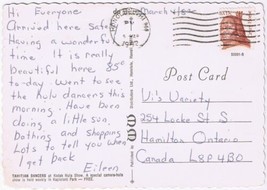 Hi Everyone March 4/82
Arrived here safely
Having a wonderful
time. It is really
beautiful here 85°
to-day. Went to see
the hula dancers this
morning. Have been
doing a little sun,
bathing and shopping
Lots to tell you when
I get back
Eileen
TAHITIAN DANCERS at Kodak Hula Show. A special camera-hula
show is held weekly in Kapiolani Park — FREE.
Post Card
Vi's Variety
254 Locke St S
Hamilton Ontario
Canada L8P4B0